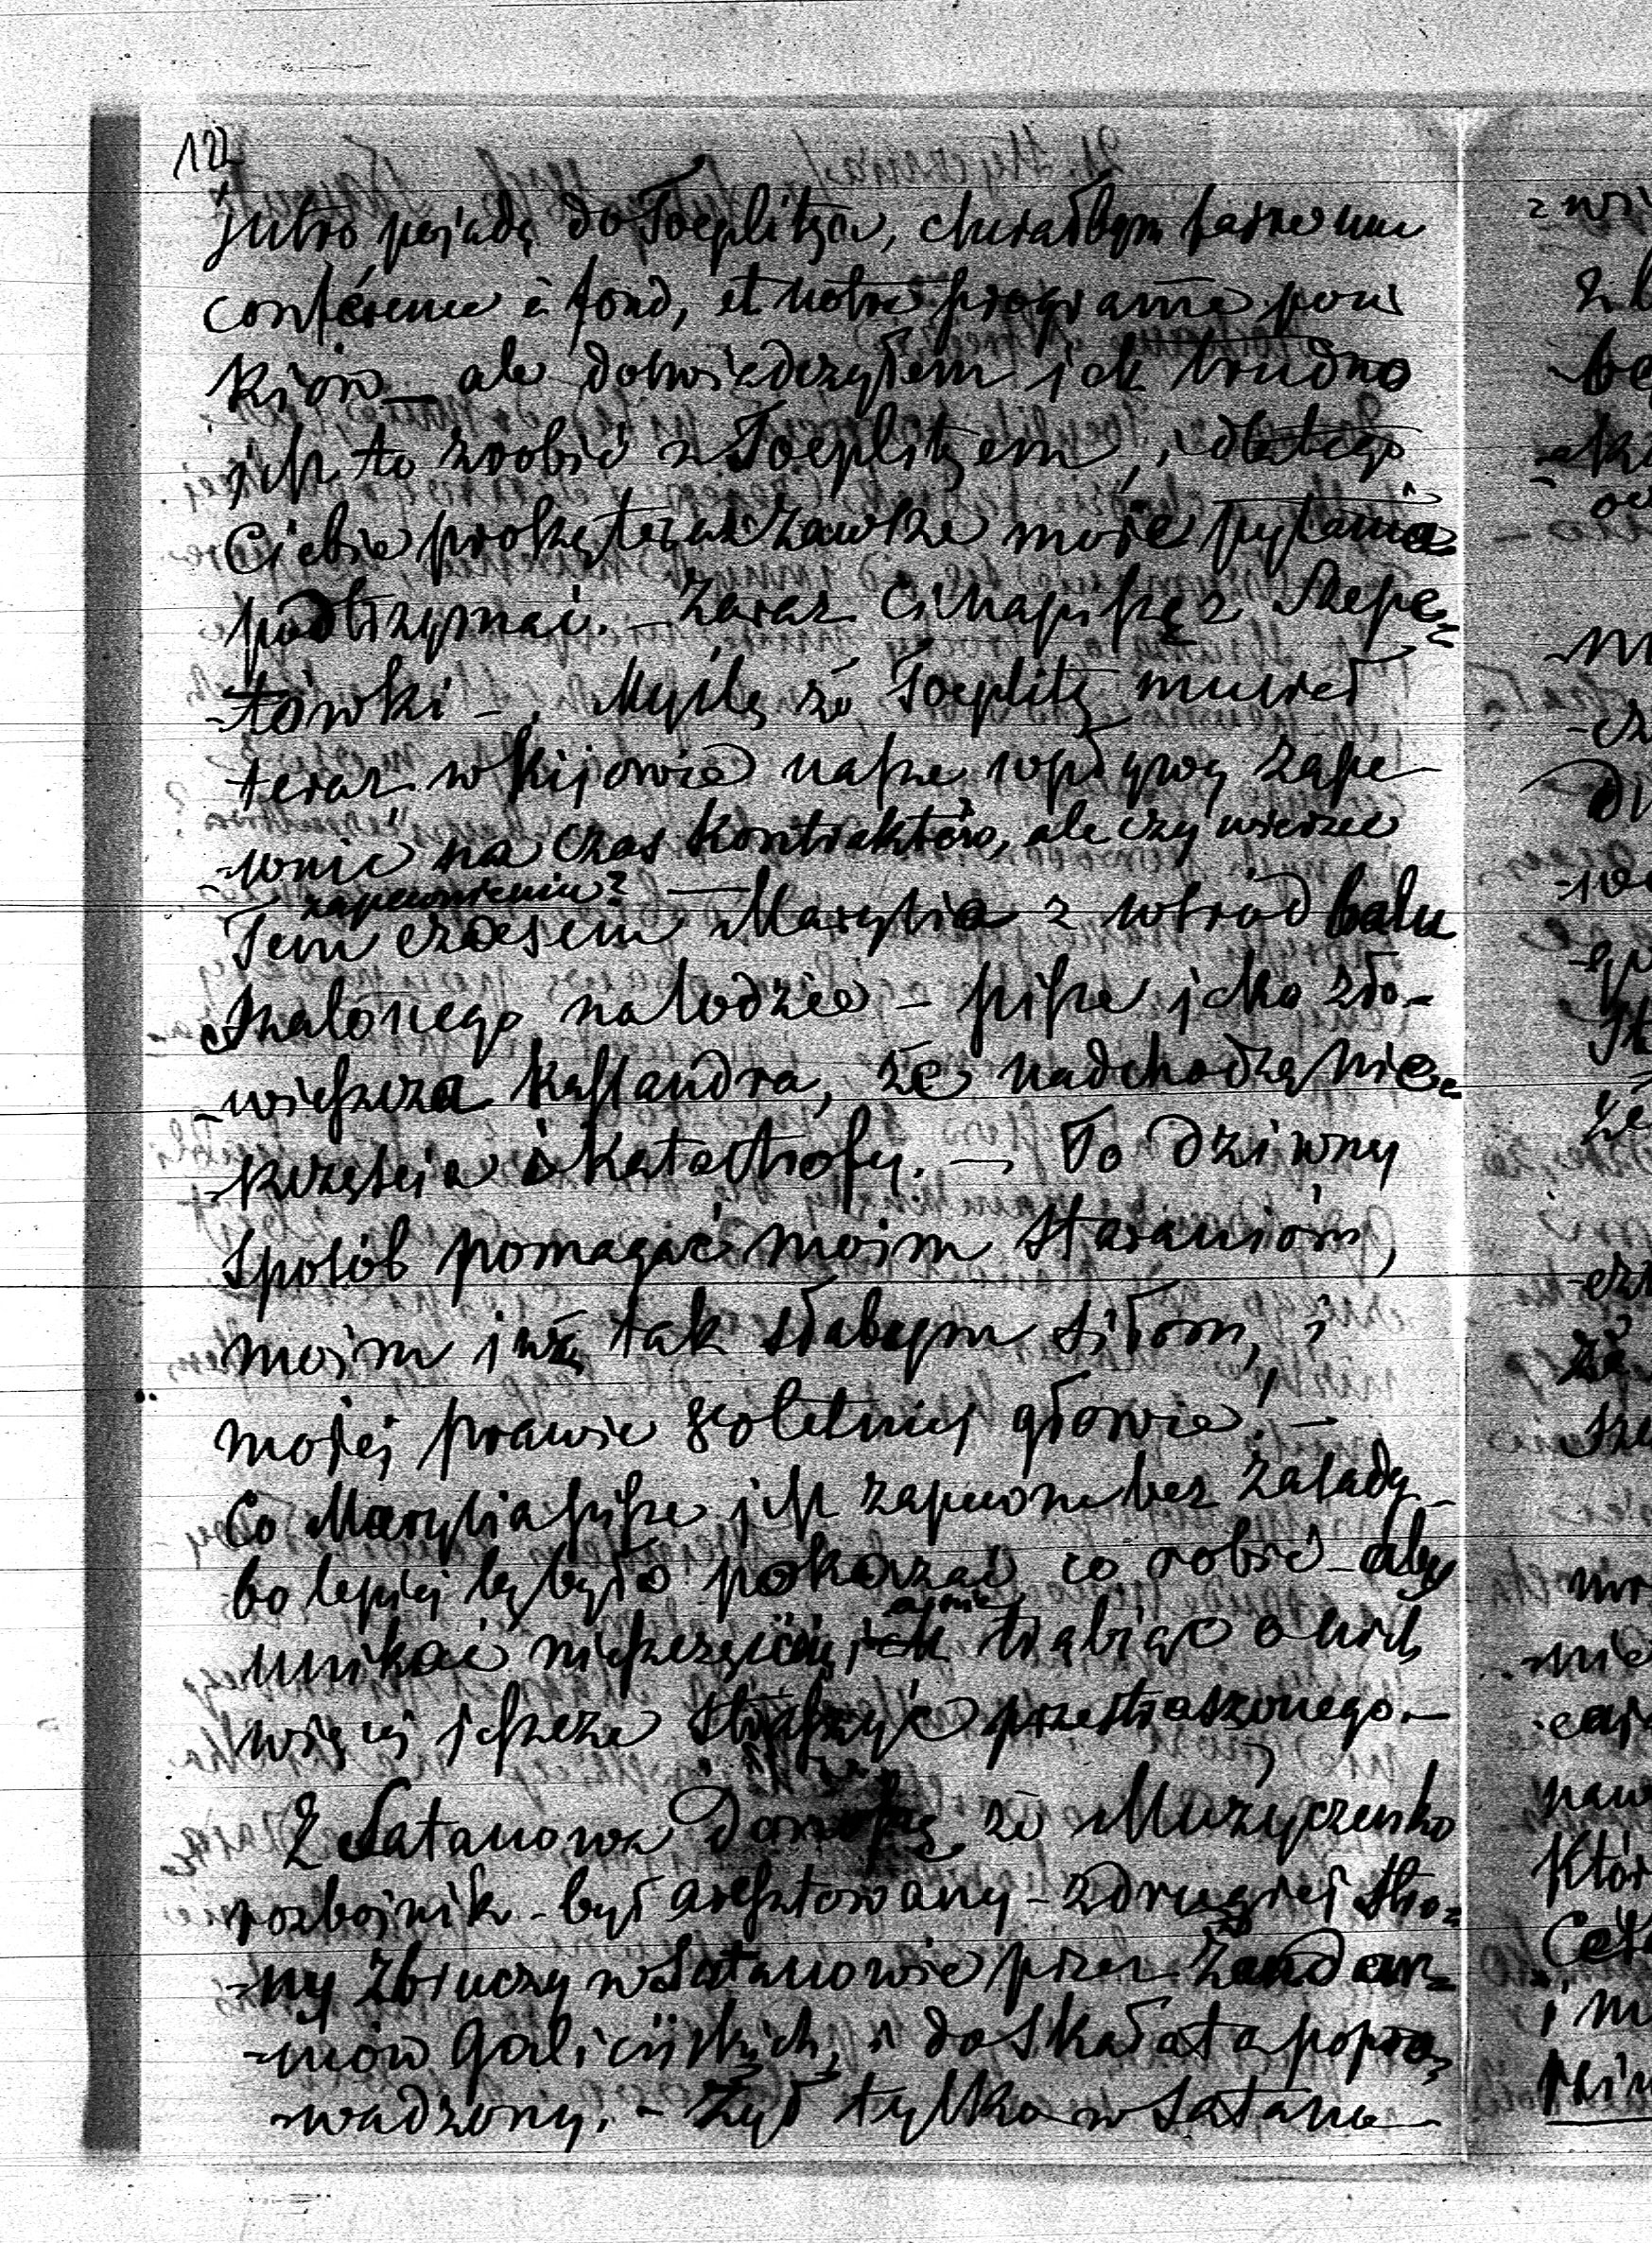 122
jutro pojadę do Toeplitza, chciałbym faire une
conférence à fond, et notre programe pour
Kiow – ale doświadczyłem jak trudno
jest to zrobić z Toeplitzem, i dlatego
Ciebie proszę teraz zawsze moje pytania
podtrzymać. – Zaraz Ci napiszę z Szepe=
-tówki –. Myślę że Toeplitz musiał
teraz w Kijowie nasze wpływy zape-
-wnić na czas Kontraktów, ale czy wierzeć
zapewnieniu? —
Tem czasem Marylia z wśród balu
szalonego na lodzie – pisze jako zło-
-wieszcza Kassandra, że nadchodzą nie=
-szczęścia i Katastrofy. – To dziwny
sposób pomagać moim staraniom,
moim już tak słabym siłom, i
mojej prawie 80letniej głowie! –
Co Marylia pisze jest zapewne bez zasady
bo lepiej by było pokazać co robić – aby
unikać nieszczęściu, a nie trąbiąc o nich
więcej jeszcze straszyć przestraszonego. –
Z Satanowa donoszą że Muzyczenko
rozbojnik – był aresztowany – z drugiej stro=
-ny Zbruczy w Satanowie przez Żandar=
-mów Galicijskich, i do Skałata popro=
-wadzony. – Żyd tylko w Satano-